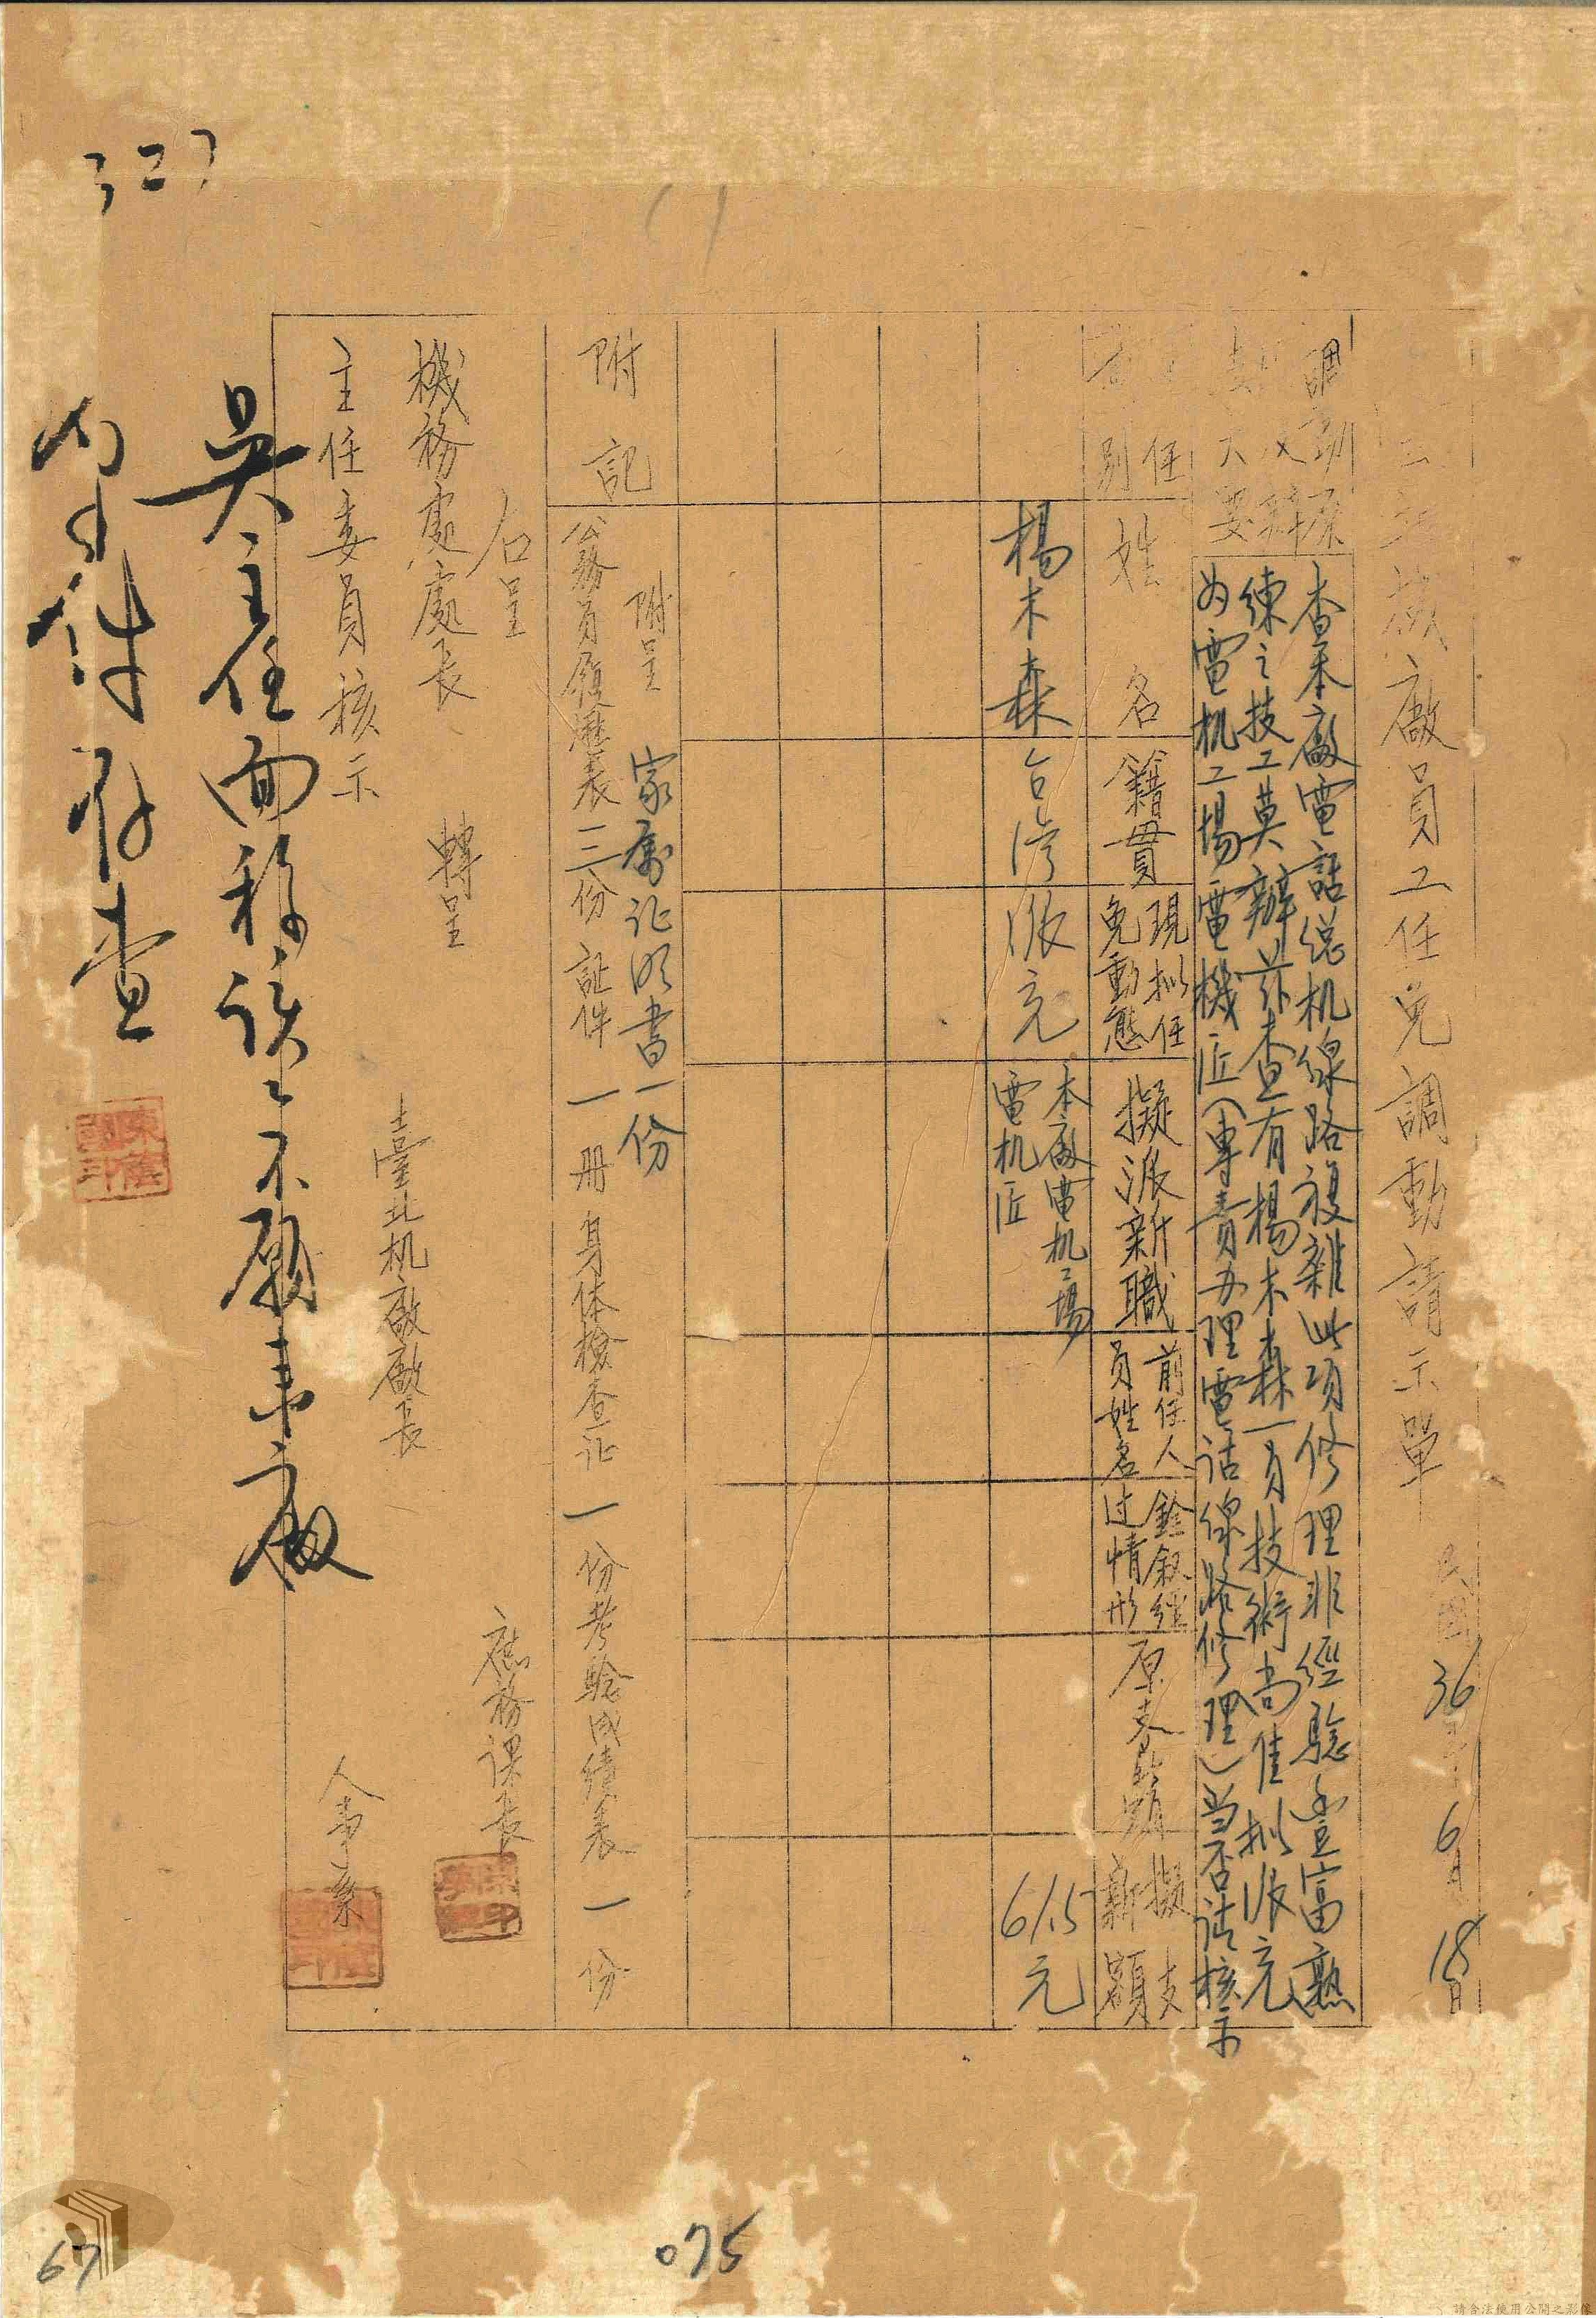 327
北機廠員工任免調動請示單
民國36年6月18日
調動原
因及辦
法大要
查本廠電話總机線路複雜此項修理非經驗丰富熟
練之技工莫辦茲查有楊木森一員技術尚佳拟派充
为電机工場電機匠(專責办理電話線路修理)当否請核示
任
別
姓名
籍貫
現拟任
免動態
擬派新職
前任人
員姓名
銓敘經
过情形
原支薪額
擬支
新額
楊木森
台湾
派充
本廠電机工場
電机匠
6/.5元
附記
附呈 家屬証明書一份
公務員履歷表三份証件一册身体檢查証一份考驗成績表一份
右呈
機務處處長 轉呈
主任委員核示
臺北机廠廠長
庶務課長
人事系
吳主任面称該工不願来廠
件存查
075
67
請合法使用公開之影像